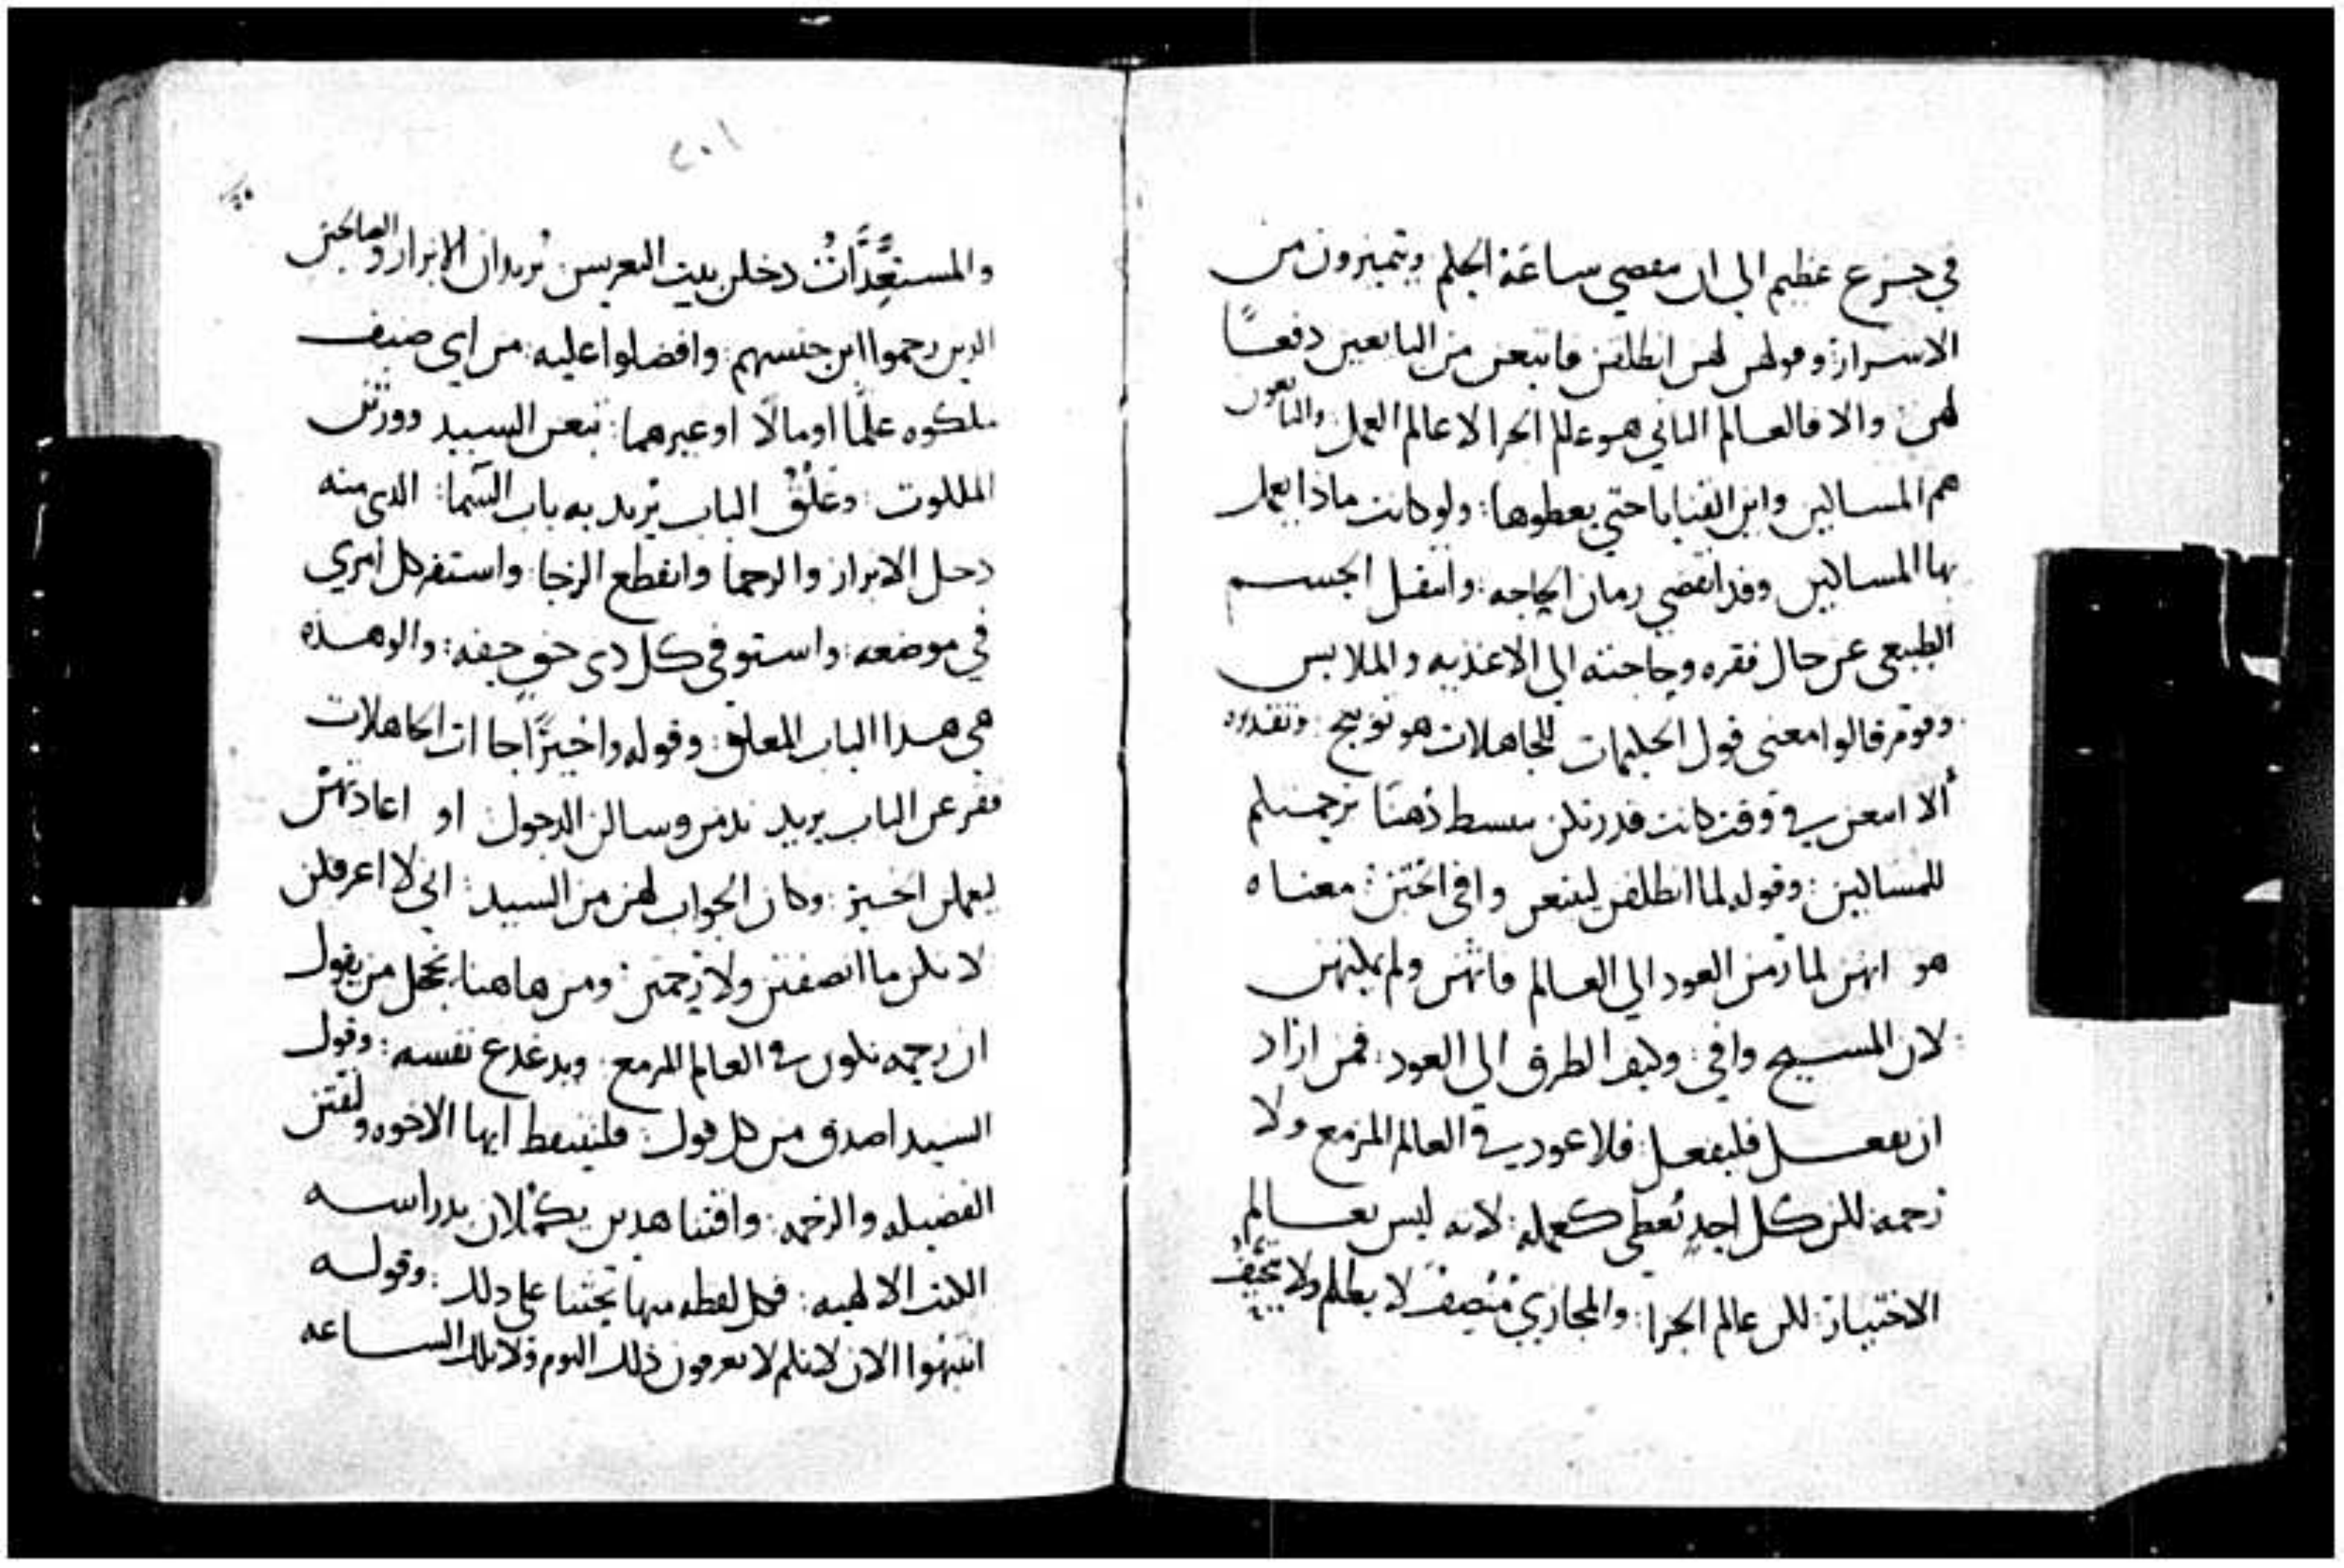 في جزع عظيم الي ان مقصي ساعة الحكم ويتميزون من
الاشرار: وقولهن لهن انطلقن فابتعن من البايعين دفعًا
لهن والا فالعالم الثاني هو عالم الجزا لا عالم العمل والبايعون
هم المساكين واين القنايا حتي يعطوها: ولو كانت ماذا يعمل
بها المساكين وقد انقضي زمان الحاجه: وانتقل الجسم
الطبيعي عن حال فقره وحاجته الي الاغذيه والملابس
وقوم قالوا معني قول الحكيمات للجاهلات هو توبيخ
ألا ابتعن في وقت كانت قدرتكن
للمساكين: وقوله لما انطلقن ليبتعن وافي الختن: معناه
هو انهن لما رمن العود الي العالم فاتهن ولم يمكنهن
لان المسيح وافي: وكيف الطرق الي العود: فمن اراد
ان يفعل فليفعل: فلا عود في العالم المزمع ولا
رحمة للن كل احدٍ يُعطي كعمله: لانه ليس بعالم
الاختيار: للن عالم الجزا: والمجازي مُنصِف لا يظلم ولا
والمستعِدَّاتُ دخلن بيت العريس يُريد ان الابرار والصالحين
الدين رحموا ابن جنسهم: وافضلوا عليه من اي صنف
ملكوه علمًا او مالًا او غيرهما: تبعن السيد وورثن
الملكوت: وغَلْقُ الباب يُريد به باب السَّما: الذي منه
دخل الابرار والرحما وانقطع الرجا: واستقر كل امري
في موضعه: واستوفي كل ذي حقٍ حقه: والوهده
هي هدا الباب المعلق: وقوله واخيرًا جاات الجاهلات
فقرعن الباب يريد ندمن وسالن الدخول او اعادتهن
ليعملن الخير: وكان الجواب لهن من السيد: اني لا اعرفكن
لانكن ما انصفتن ولا رحمتن: ومن هاهنا من يقول
ان رحمه تكون في العالم المزمع: ويدغدغ نفسه: وقول
السيد اصدق من كل قول: فلنتيقظ ايها الاخوه ولنقتن
الفضيله والرحمه: واقتنا هدين يكمُلان بدراسه
الكتب الالهيه: فكل لفظه منها تحثنا علي دلك: وقوله
انتبهوا الان لانكم لا تعرفون ذلك اليوم ولا تلك الساعه